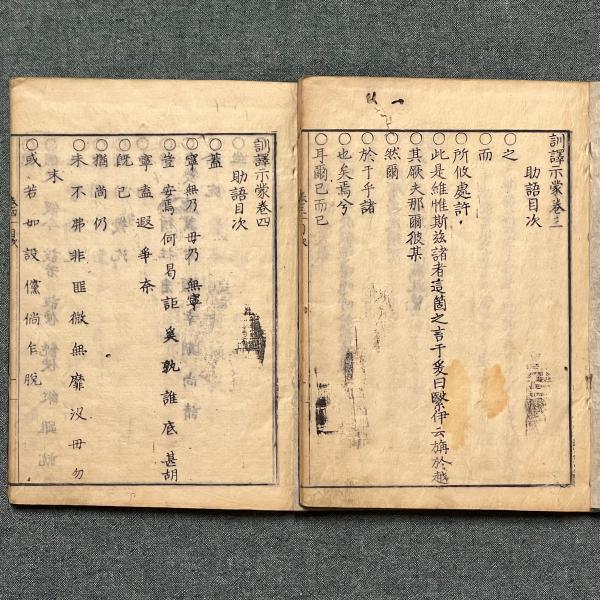 訓譯示蒙卷三
助語目次
○之
○而
○所攸處許
○此是維惟斯茲諸者這箇之言于爰曰繄伊云旃於越
○其厥夫那爾彼某
○然爾
○於于乎諸
○也矣焉兮
○耳爾已而已
訓譯示蒙卷四
助語目次
○蓋
○寧無乃毋乃無寧
○豈安焉何曷詎奚孰誰底甚胡
寧盍遐爭奈
○既已
○猶尚仍
○未不弗非匪微無靡沒毋勿
末
○或若如設儻倘乍脫